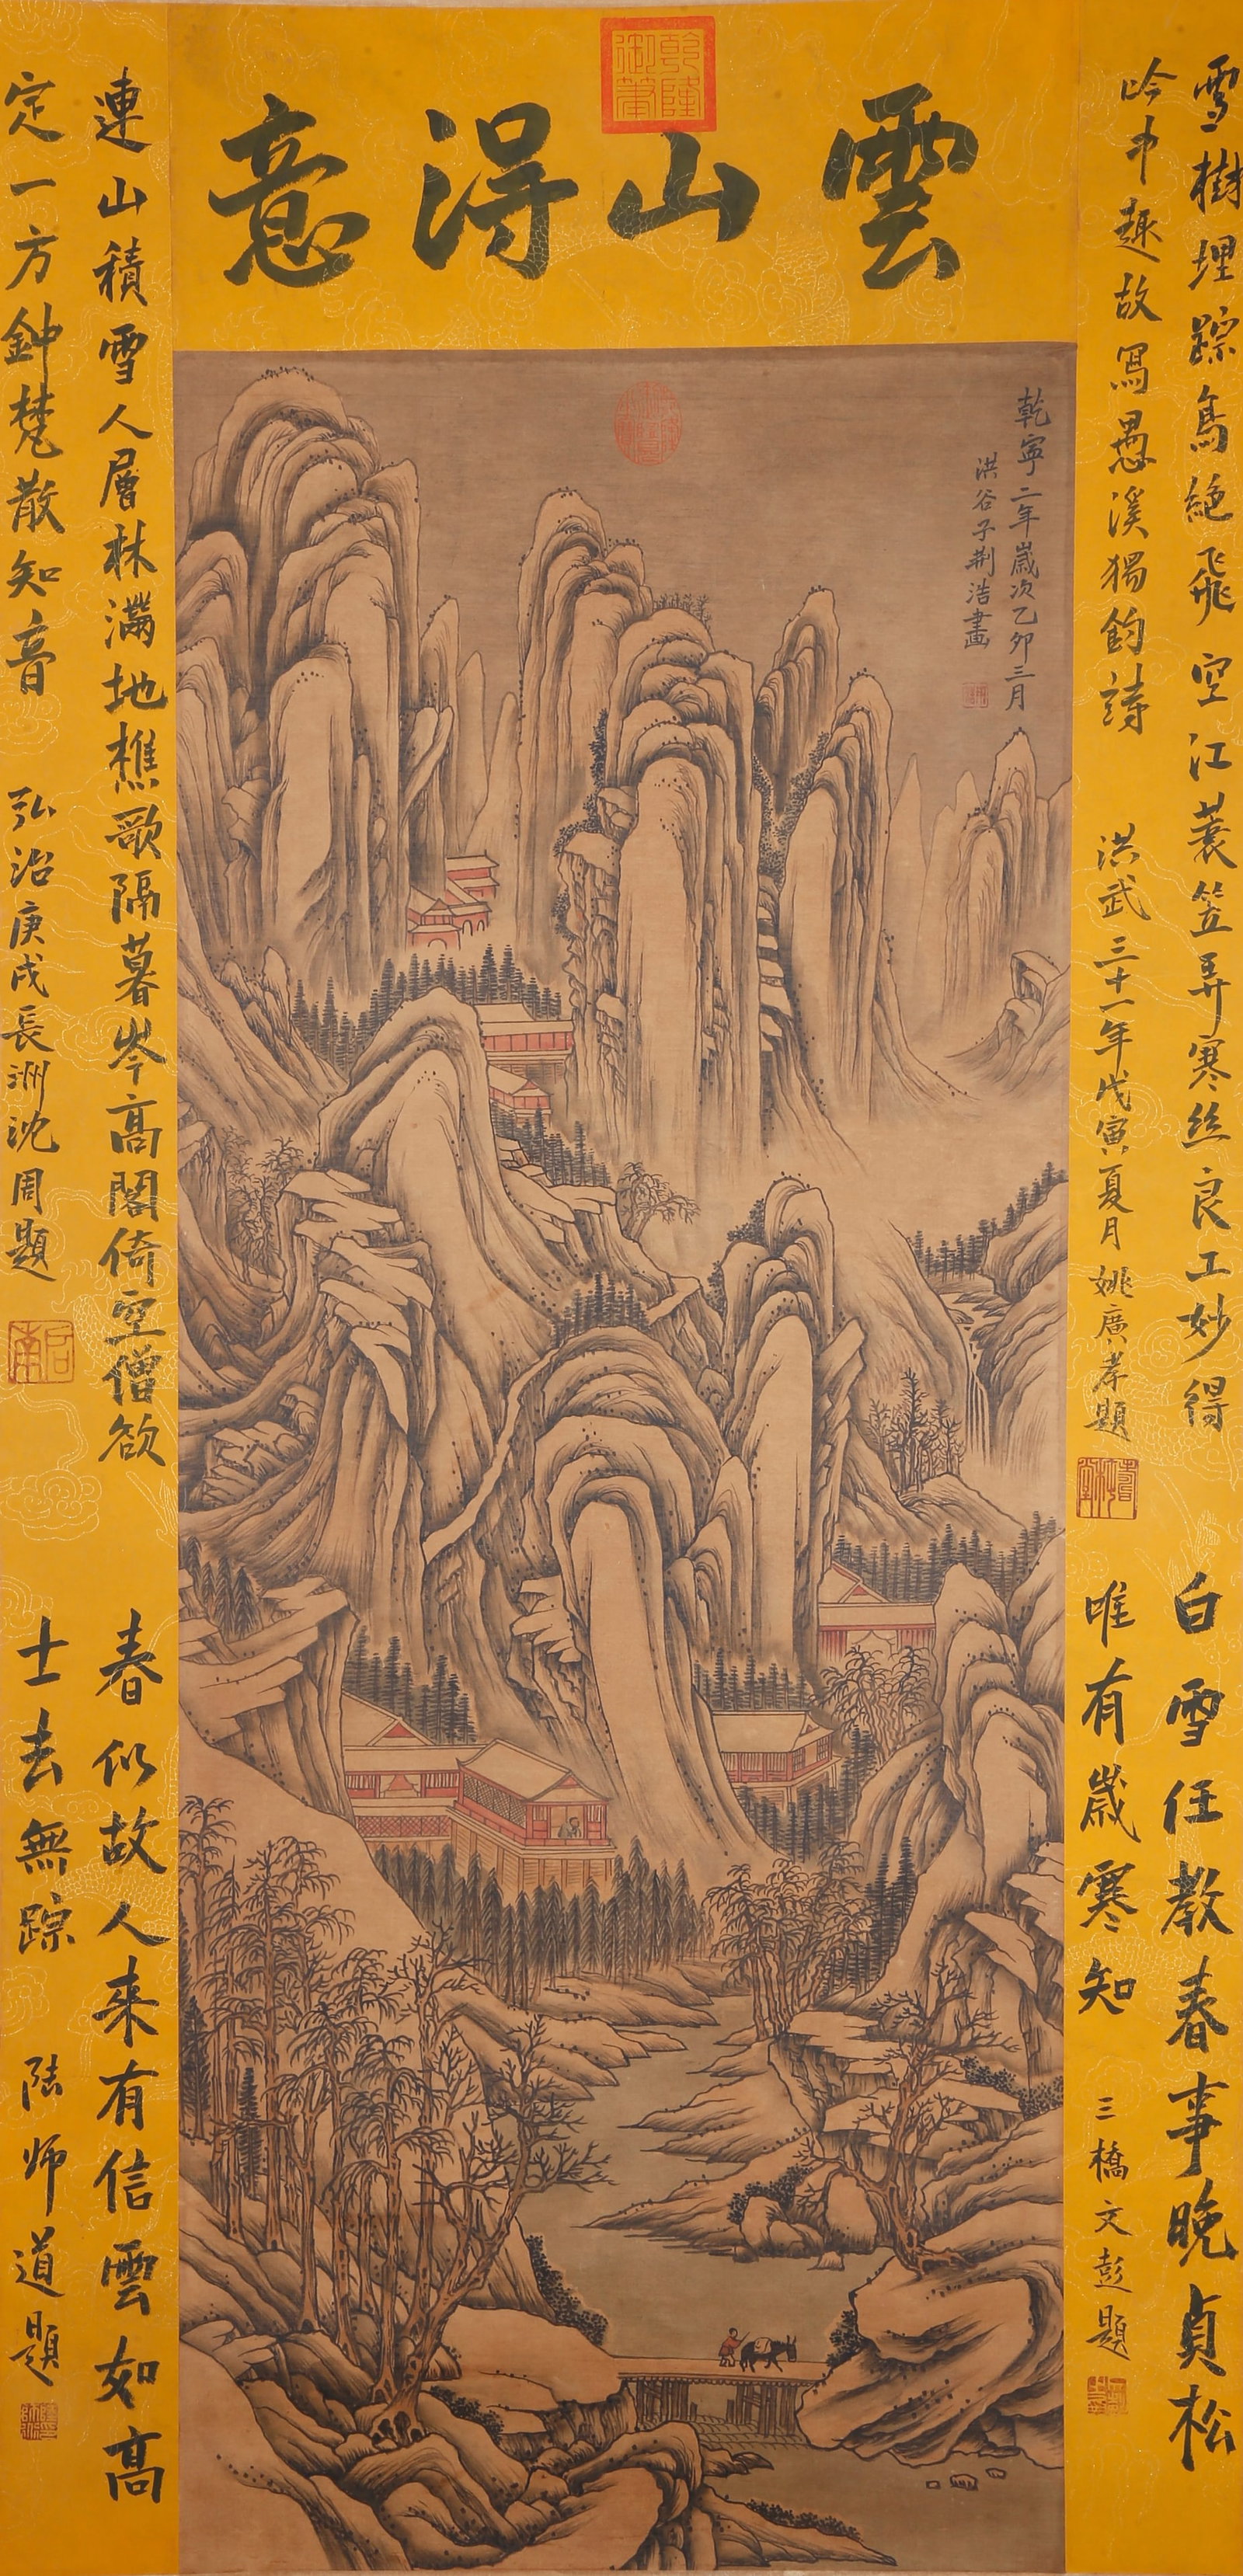 雲山得意
乾隆御筆
雪樹埋踪鳥絶飛空江蓑笠弄寒丝良工妙得
吟中趣故冩愚溪獨釣詩
洪武三十一年戊寅夏月姚廣孝題
白雪任教春事晚貞松
唯有歲寒知
三橋文彭題
乾寜二年歲次乙卯三月
洪谷子荆浩畫
連山積雪人層林滿地樵歌隔暮岑高閣倚空僧欲
定一方鈡梵散知音
弘治庚戌長洲沈周題
啟南
春似故人来有信雲如高
士去無踪
陆师道題